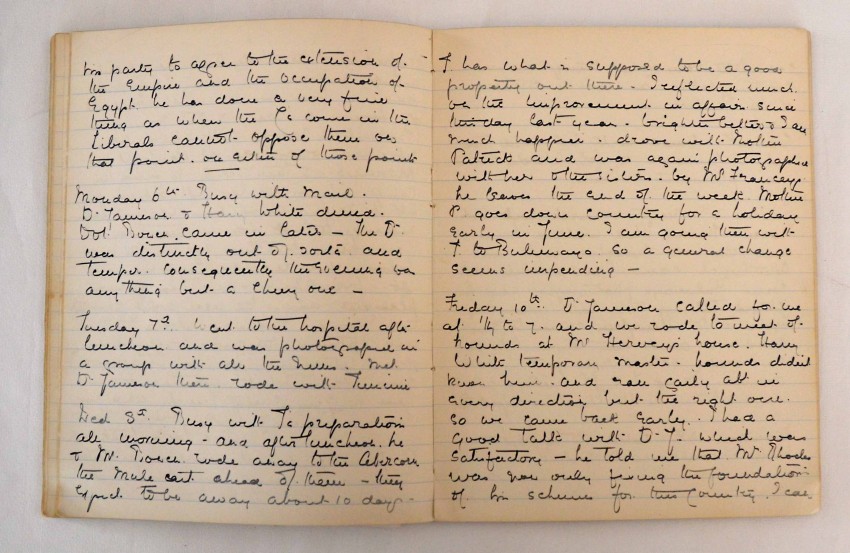 his party to agree to the extension of
the Empire and the occupation of
Egypt he has done a very fine
thing as when the Cs come in the
Liberals cannot oppose them on
that point. on either of those points
Monday 6th. Busy with mail.
Dr Jameson & Harry White dined.
Col. came in later - the Dr
was distinctly out of sorts and
temper. Consequently the evening was
anything but a cheery one -
Tuesday 7th. Went to the hospital after
luncheon and was photographed in
a group with all the Nuns. Met
Dr Jameson there. rode with
Wed 8th. Busy with preparations
all morning - and after luncheon he
& Mr. rode away to the Abercorn
the mule cart ahead of them - they
expect to be away about 10 days -
I has what is supposed to be a good
property out there. I reflected much
on the improvement in affairs since
this day last year. brighter better & I am
much happier. drove with Mother
Patrick and was again photographed
with her & the sisters. by Mr Franceys
he leaves the end of the week. Mother
P. goes down country for a holiday
early in June. I am going then with
J. to Buluwayo. so a general change
seems impending -
Friday 10th. Dr Jameson called for me
at 1/4 to 7. and we rode to meet of
hounds at Mr Hervey's house. Harry
White temporary master. hounds didn't
know him. and ran gaily abt in
every direction but the right one.
so we came back early. I had a
good talk with Dr J. which was
satisfactory - he told me that Mr Rhodes
was now only laying the foundations
of his scheme for this Country. I can